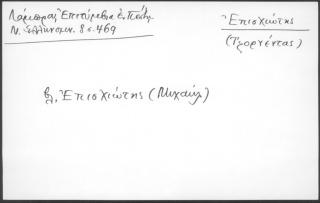 Λάμπρου, Ἐπιτύμβια ἐν
Ν. Ἑλληνομν. 8 σ. 469
Ἐπισχιώτης
(Τζορνέντας)
βλ. Ἐπισχιώτης (Μιχαήλ)